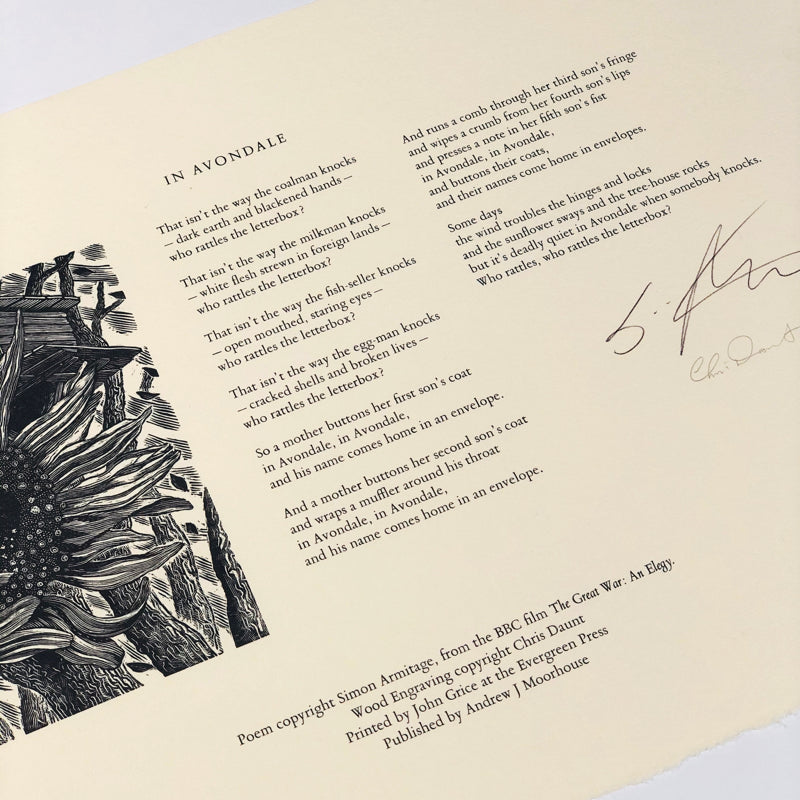 IN AVONDALE
That isn't the way the coalman knocks
— dark earth and blackened hands —
who rattles the letterbox?
That isn't the way the milkman knocks
— white flesh strewn in foreign lands —
who rattles the letterbox?
That isn't the way the fish-seller knocks
— open mouthed, staring eyes —
who rattles the letterbox?
That isn't the way the egg-man knocks
— cracked shells and broken lives —
who rattles the letterbox?
So a mother buttons her first son's coat
in Avondale, in Avondale,
and his name comes home in an envelope.
And a mother buttons her second son's coat
and wraps a muffler around his throat
in Avondale, in Avondale,
and his name comes home in an envelope.
And runs a comb through her third son's fringe
and wipes a crumb from her fourth son's lips
and presses a note in her fifth son's fist
in Avondale, in Avondale,
and buttons their coats,
and their names come home in envelopes.
Some days
the wind troubles the hinges and locks
and the sunflower sways and the tree-house rocks
but it's deadly quiet in Avondale when somebody knocks.
Who rattles, who rattles the letterbox?
Chris Daunt
Poem copyright Simon Armitage, from the BBC film The Great War: An Elegy.
Wood Engraving copyright Chris Daunt
Printed by John Grice at the Evergreen Press
Published by Andrew J Moorhouse